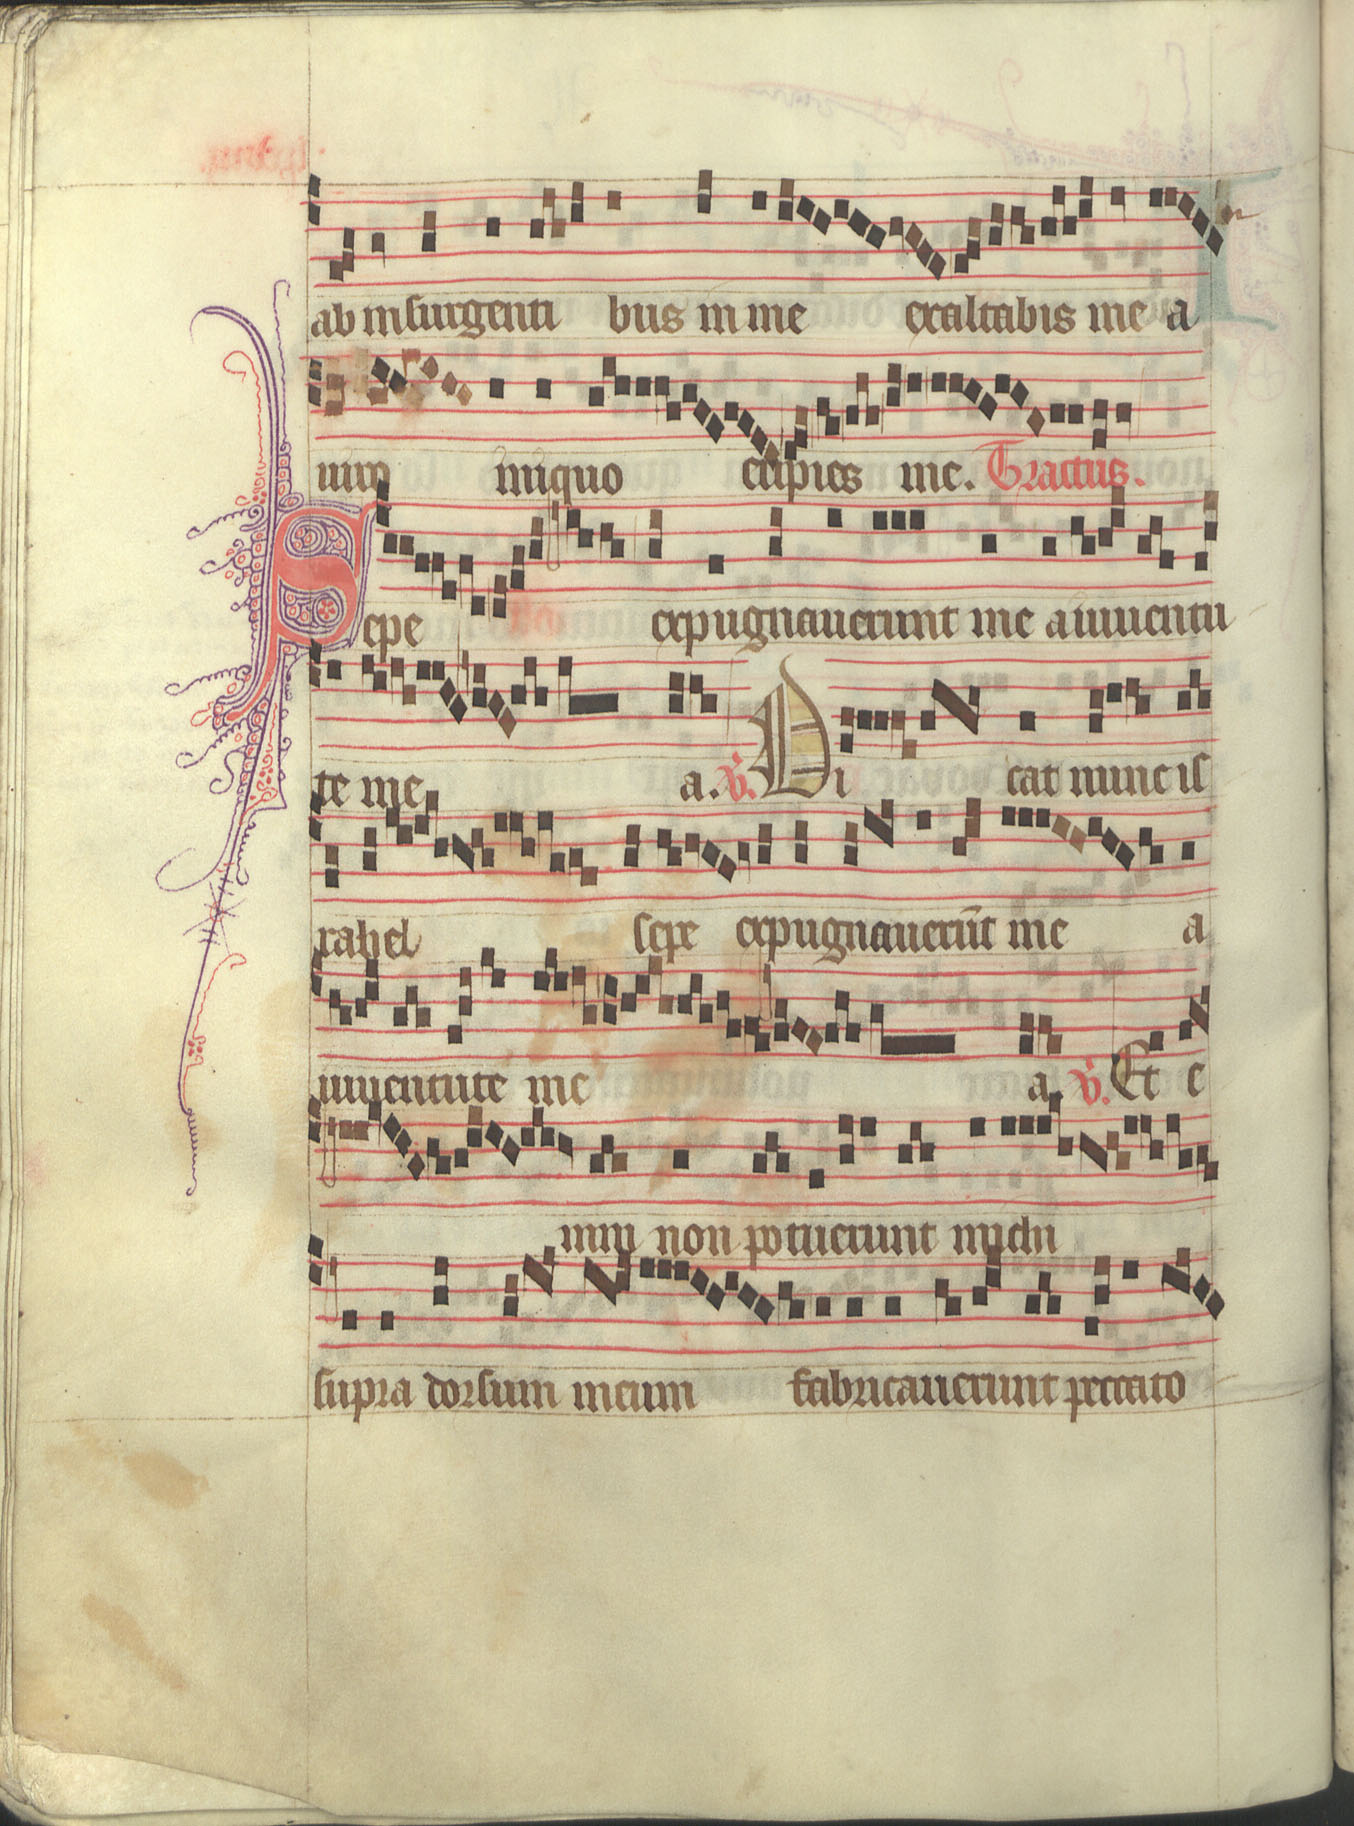 ab insurgenti bus in me exaltabis me a
uiro iniquo eripies me. Tractus.
Sepe expugnauerunt me a iuuentu
te me a. V. Di cat nunc is
rahel sepe expugnauerūt me a
iuuentute me a. V. Et e
nim non potuerunt michi
supra dorsum meum fabricauerunt peccato